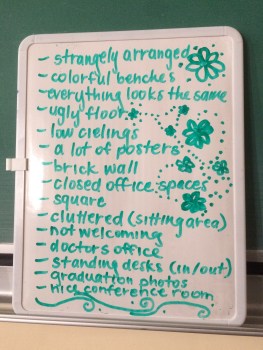 - strangely arranged
- colorful benches
- everything looks the same
- ugly floor
- low cielings
- a lot of posters
- brick wall
- closed office spaces
- square
- cluttered (sitting area)
- not welcoming
- doctors office
- standing desks (in/out)
- graduation photos
- nice conference room